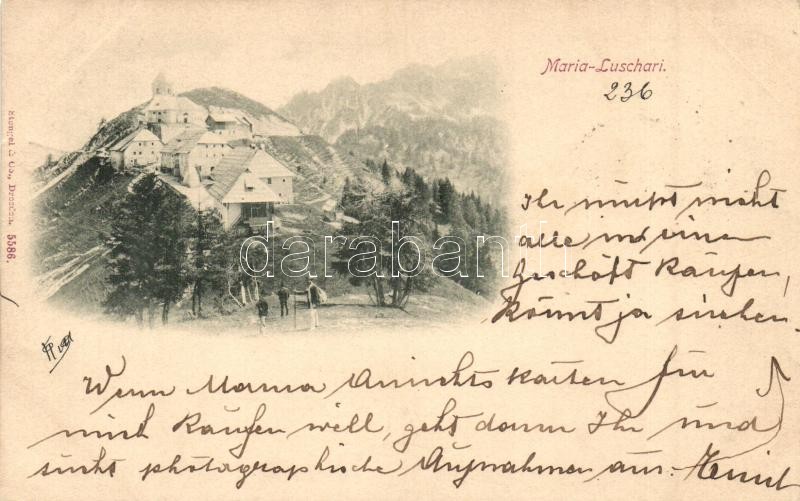 Maria-Luschari.
236
Ihr müßt nicht
alle in einem
Geschäft kaufen,
könnt ja suchen.
Wenn Mama Ansichtskarten für
mich kaufen will, geht dann Ihr und
sucht photographische Aufnahmen aus.
Stengel & Co., Dresden. 5586.
darabanth.com